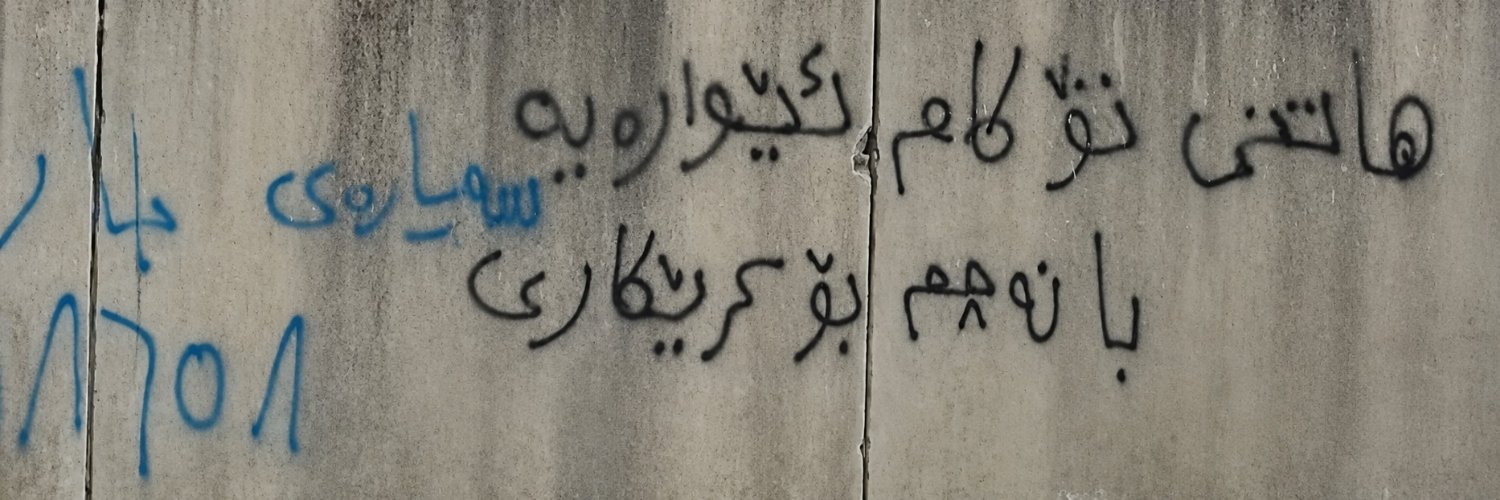 هاتنی تۆ کام ئێوارەیە
با نەچم بۆ کرێکاری
سەیارەی بار
٨٦٥٨